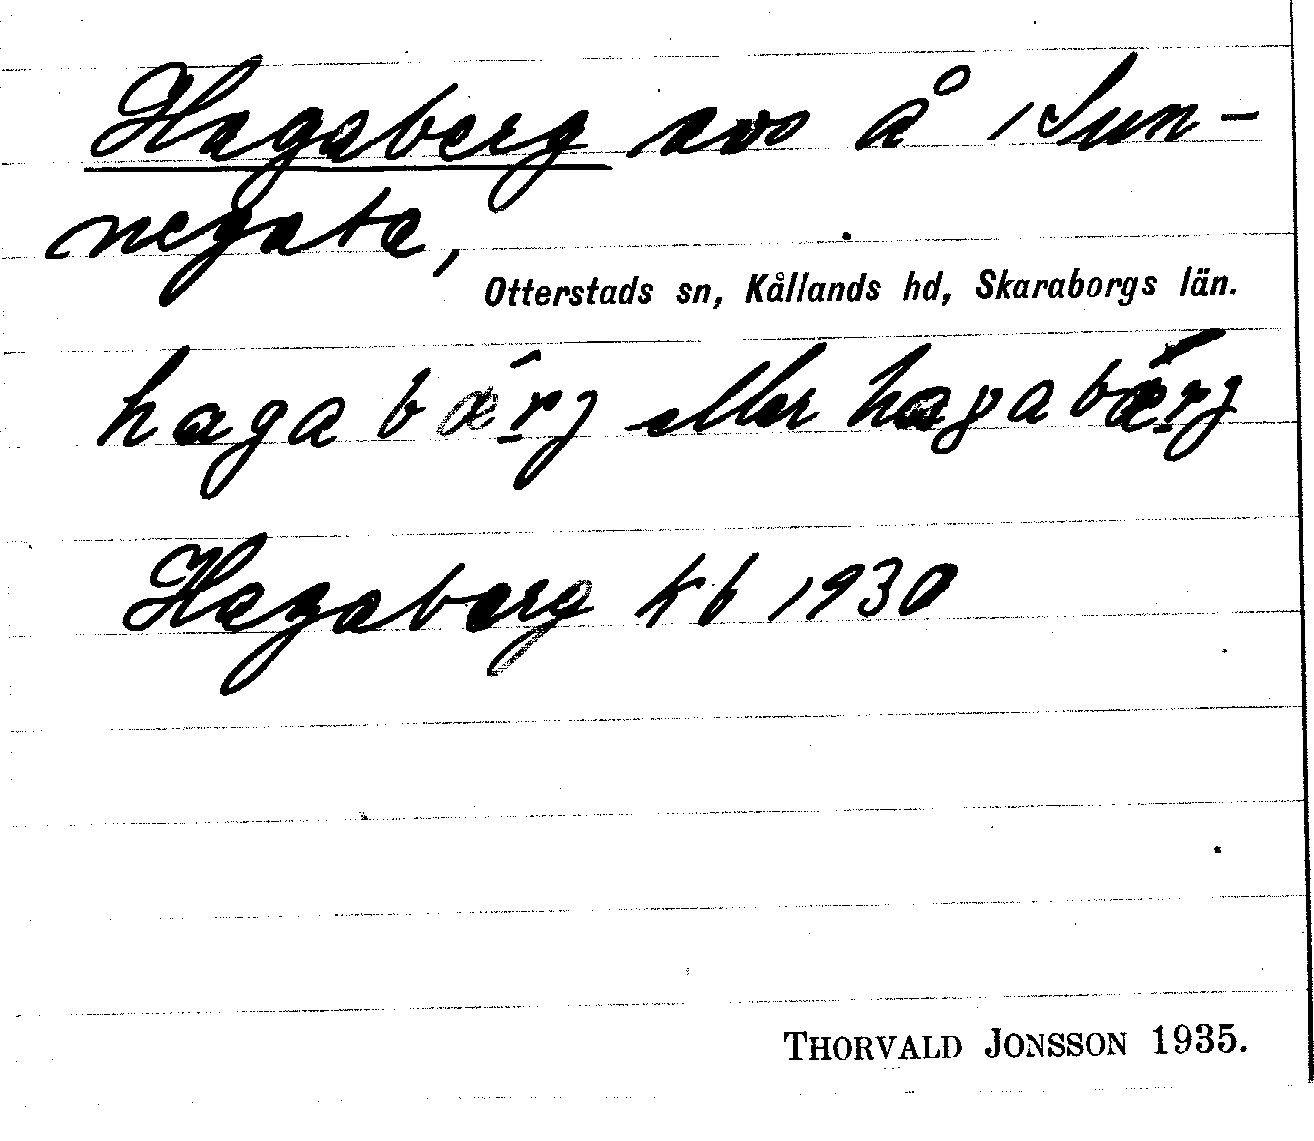 Hagaberg avs å 1 Sun-
negata,
Otterstads sn, Kållands hd, Skaraborgs län.
hagabæ´rj eller hagabæ`rj
Hagaberg kb 1930
THORVALD JONSSON 1935.